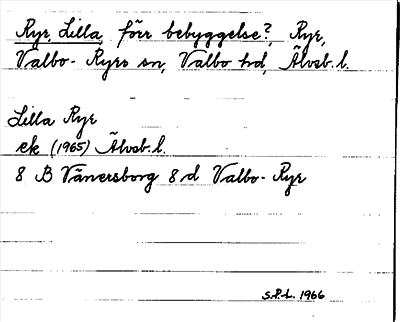 Ryr, Lilla, förr bebyggelse?, Ryr,
Valbo-Ryrs sn, Valbo hd, Älvsb. l.
Lilla Ryr
ek (1965) Älvsb. l.
8 B Vänersborg 8 d Valbo-Ryr
S.P.L. 1966